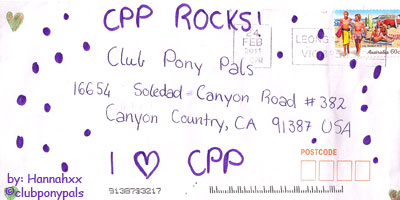 CPP ROCKS!
24
FEB
2011
LEONG
VIC
Australia 60c
Club Pony Pals
16654 Soledad Canyon Road #382
Canyon Country, CA 91387 USA
I ♡ CPP
POSTCODE
91387$3217
by: Hannahxx
©clubponypals